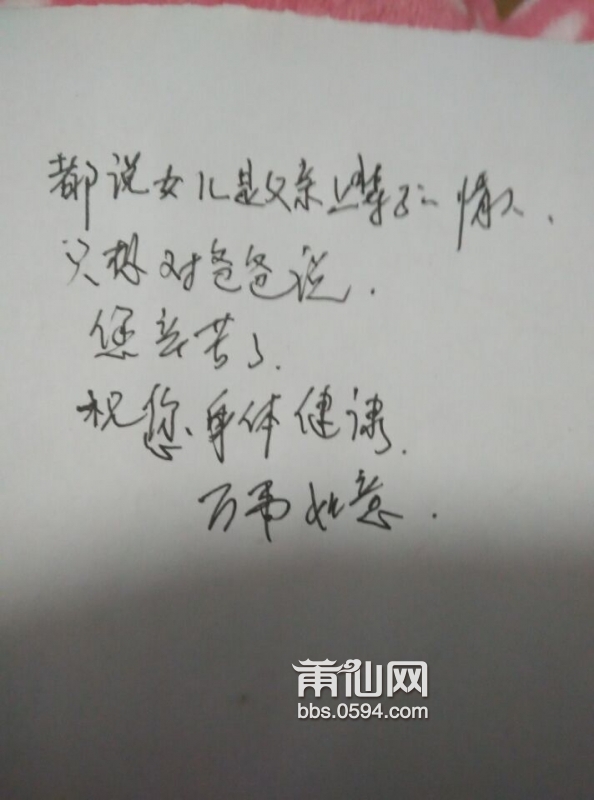 都说女儿是父亲上辈子的情人.
只想对爸爸说.
您辛苦了.
祝您身体健康.
万事如意.
莆仙网
bbs.0594.com